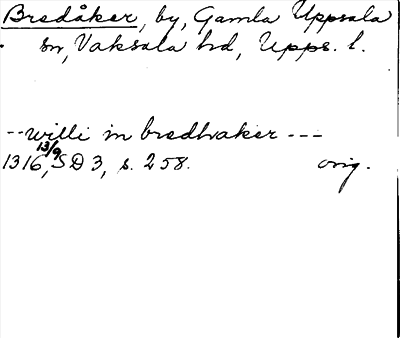 Bredåker, by, Gamla Uppsala
sn, Vaksala hd, Upps. l.
-- willi in bredhaker ---
13/9
1316, SD 3, s. 258. orig.